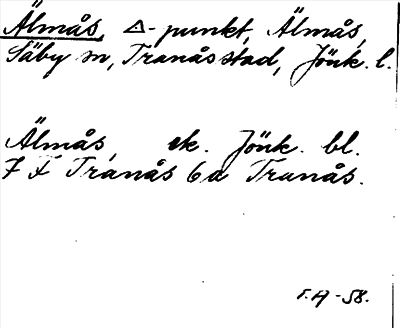 Älmås, △-punkt, Älmås,
Säby sn, Tranås stad, Jönk. l.
Älmås, ek. Jönk. bl.
7 F Tranås 6a Tranås.
F.A -58.